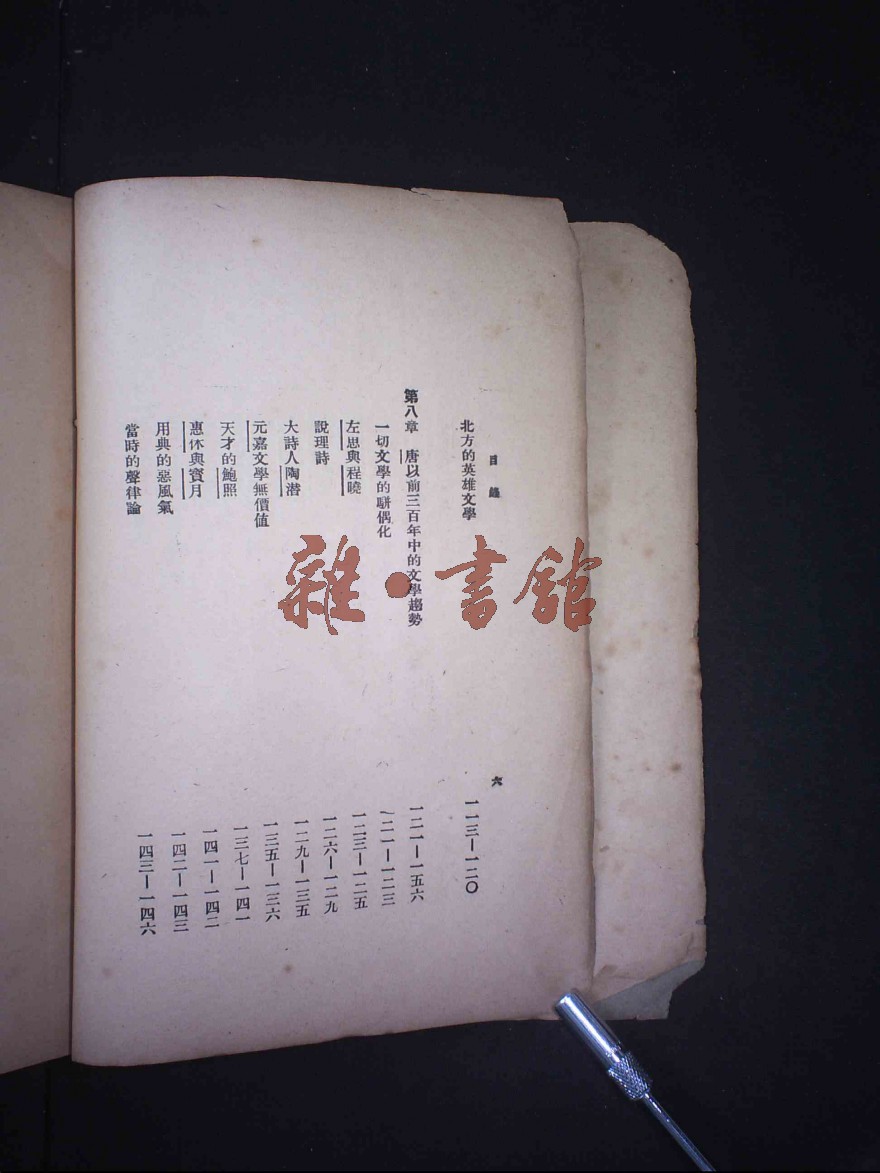 目錄
六
北方的英雄文學
一一三—一二〇
第八章 唐以前三百年中的文學趨勢
一二一—一五六
一切文學的駢偶化
一二一—一二三
左思與程曉
一二三—一二五
說理詩
一二六—一二九
大詩人陶潛
一二九—一三五
元嘉文學無價值
一三五—一三六
天才的鮑照
一三七—一四一
惠休與寶月
一四一—一四二
用典的惡風氣
一四二—一四三
當時的聲律論
一四三—一四六
雜·書館